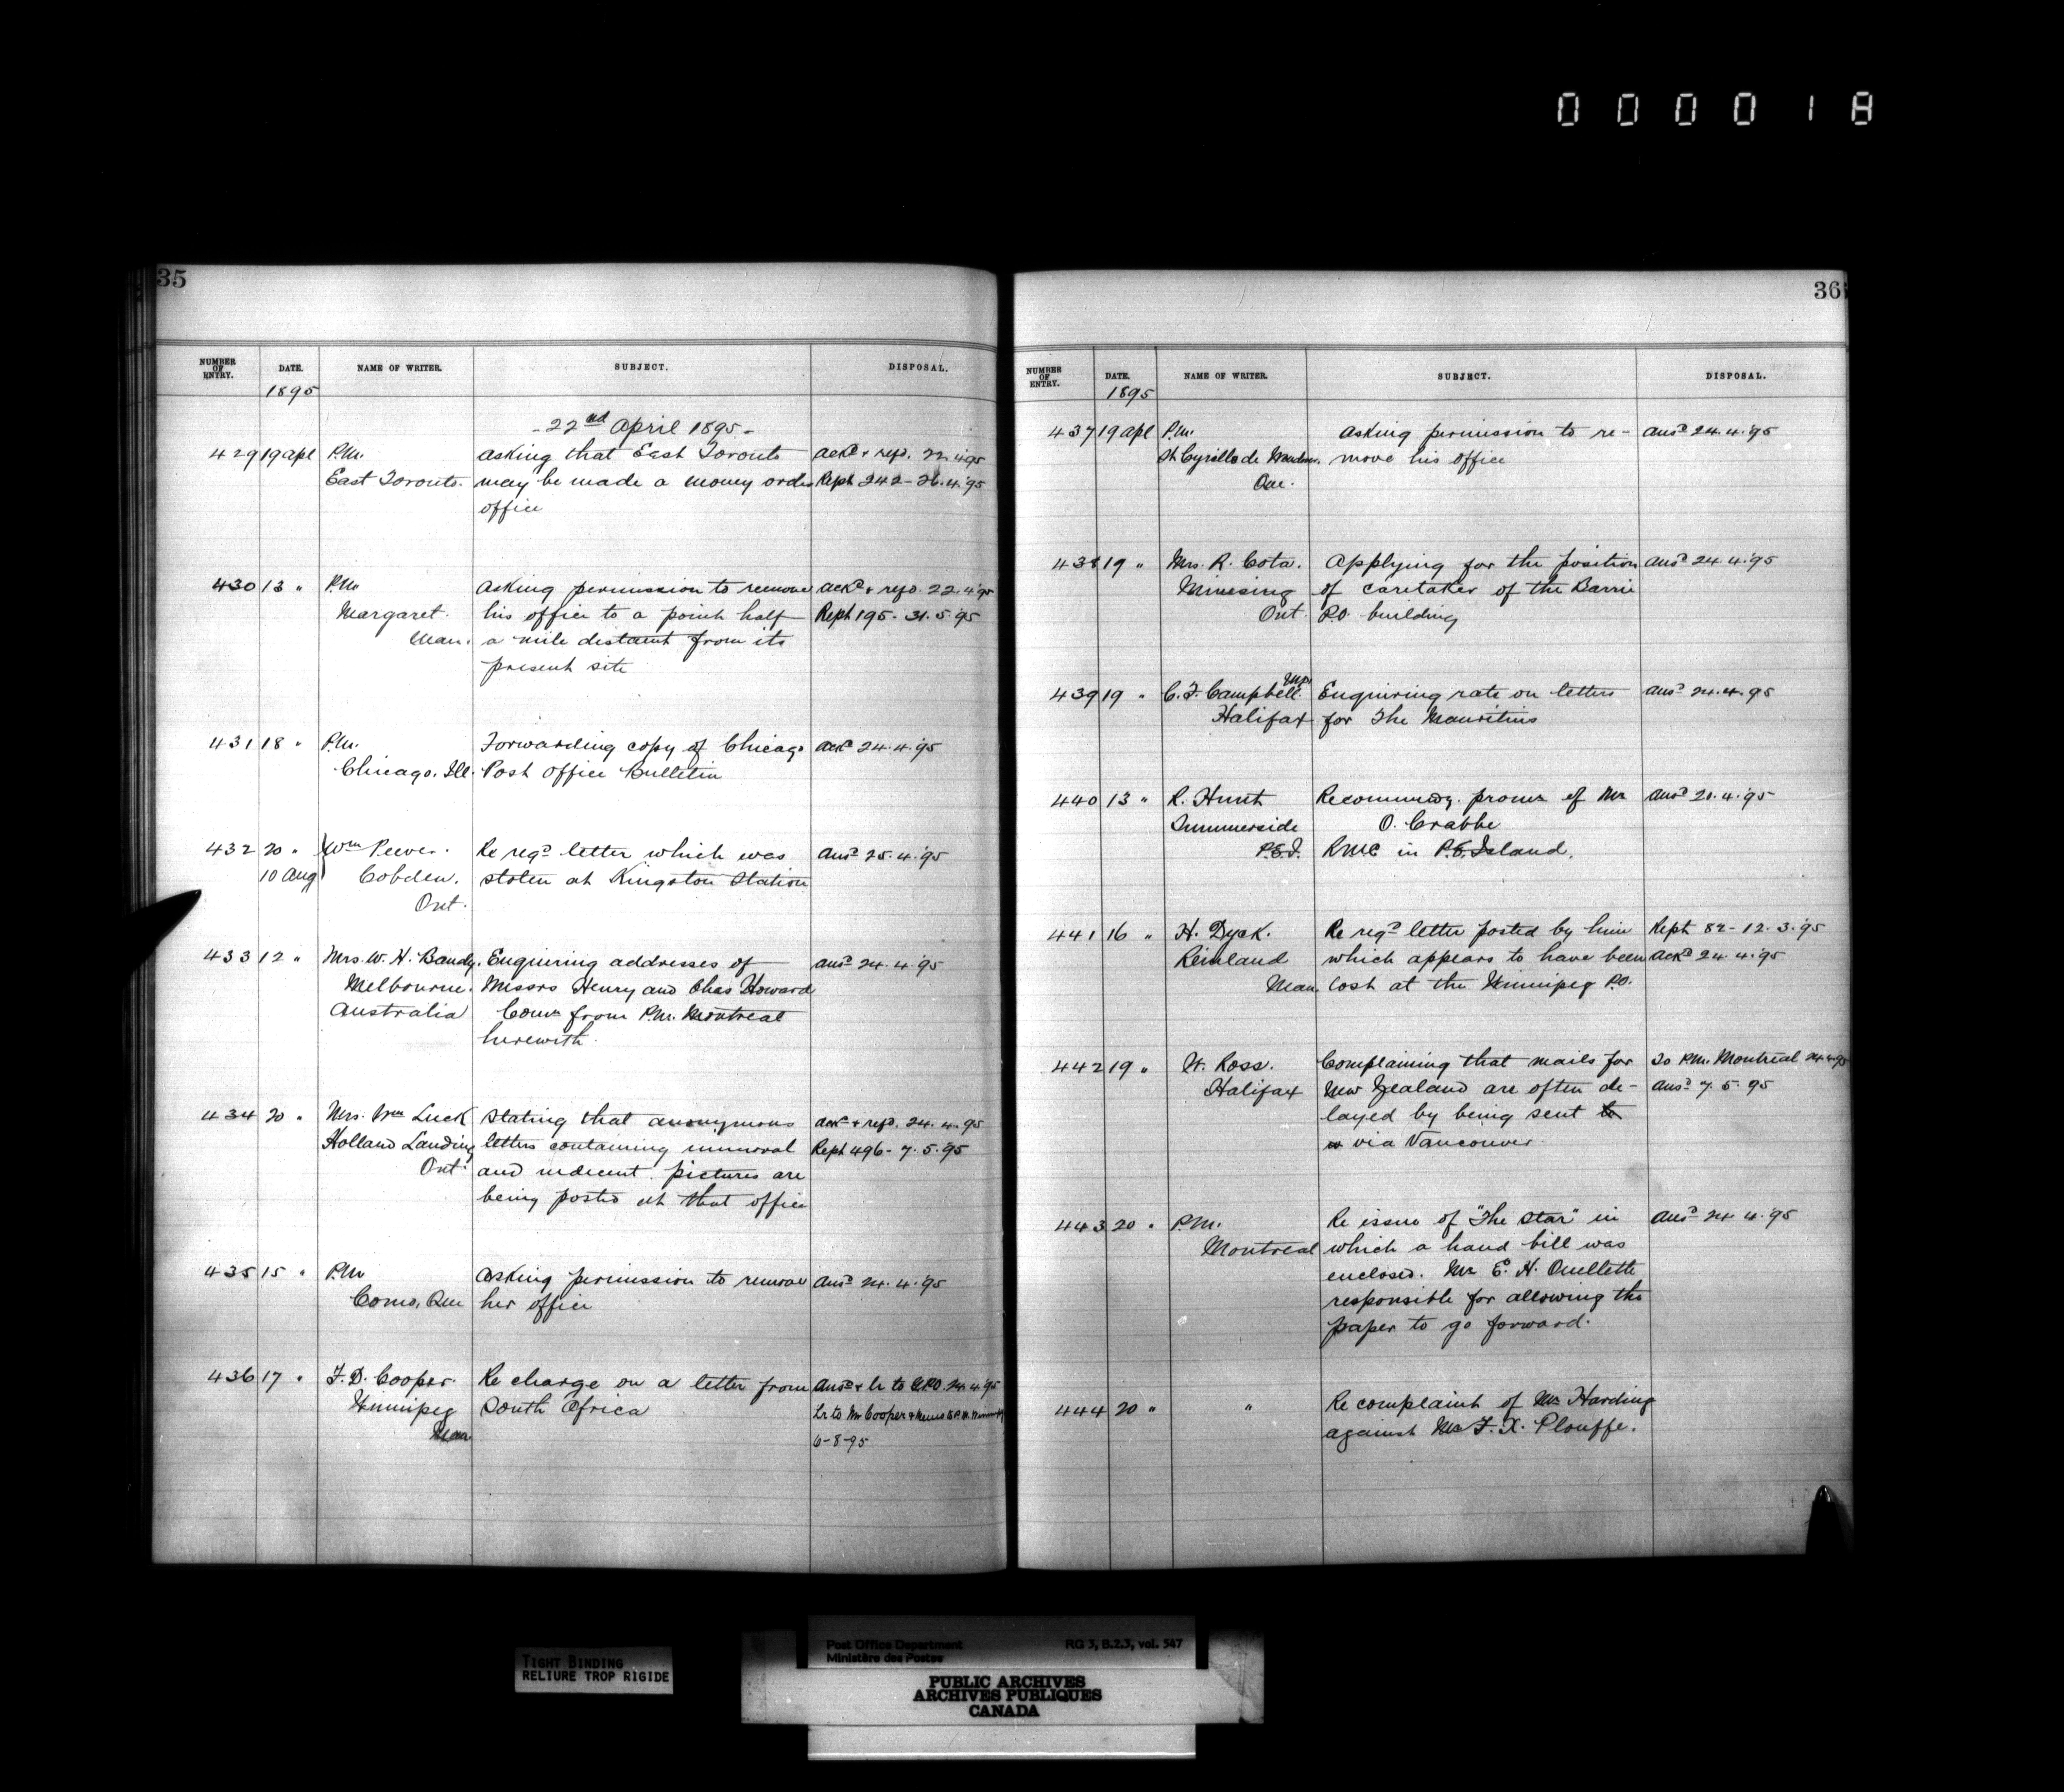 0 0 0 0 1 8
35
NUMBER OF ENTRY. DATE. NAME OF WRITER. SUBJECT. DISPOSAL.
1895
- 22nd April 1895 -
429 19 Apl P.M. Asking that East Toronto Ackd & refd. 22.4.'95
East Toronto. may be made a money order Rept 242 - 26.4.'95
office
430 13 " P.M. Asking permission to remove Ackd & refd. 22.4.'95
Margaret. his office to a point half Rept 195 - 31.5.'95
Man. a mile distant from its
present site
431 18 " P.M. Forwarding copy of Chicago Ackd 24.4.'95
Chicago, Ill. Post Office Bulletin
432 20 " Wm Peever. Re regd letter which was Ansd 25.4.'95
10 Aug Cobden. stolen at Kingston Station
Ont.
433 12 " Mrs. W. H. Bandy. Enquiring addresses of Ansd 24.4.'95
Melbourne. Messrs Henry and Chas Howard
Australia Comn from P.M. Montreal
herewith.
434 20 " Mrs. Wm Luck Stating that anonymous Ackd & refd. 24.4.95
Holland Landing letters containing immoral Rept 496 - 7.5.'95
Ont. and indecent pictures are
being posted at that office
435 15 " P.M. Asking permission to remove Ansd 24.4.'95
Como, Que her office
436 17 " F. D. Cooper. Re charge on a letter from Ansd & lr to GPO 24.4.'95
Winnipeg South Africa Lr to Mr Cooper & Memo to P.M.
Man 6-8-95
36
NUMBER OF ENTRY. DATE. NAME OF WRITER. SUBJECT. DISPOSAL.
1895
437 19 Apl P.M. Asking permission to re- Ansd 24.4.'95
St Cyrille de move his office
Que.
438 19 " Mrs. R. Cota. Applying for the position Ansd 24.4.'95
Minesing of caretaker of the Barrie
Ont. P.O. building
439 19 " C. F. Campbell. Enquiring rate on letters Ansd 24.4.95
Halifax for The Mauritius
440 13 " R. Hunt Recommendg. promn of Mr Ansd 20.4.'95
Summerside O. Crabbe
P.E.I. RMC in P.E. Island.
441 16 " H. Dyck. Re regd letter posted by him Rept 82 - 12.3.'95
Reinland which appears to have been Ackd 24.4.'95
Man. lost at the Winnipeg P.O.
442 19 " W. Ross. Complaining that mails for To P.M. Montreal 24.4.95
Halifax New Zealand are often de- Ansd 7.5.95
layed by being sent
via Vancouver.
443 20 " P.M. Re issue of "The Star" in Ansd 24.4.'95
Montreal which a hand bill was
enclosed. Mr E. H. Ouellette
responsible for allowing the
paper to go forward.
444 20 " " Re complaint of Mr Harding
against Mr F. X. Plouffe.
TIGHT BINDING
RELIURE TROP RIGIDE
Post Office Department RG 3, B.2.3, vol. 547
Ministère des Postes
PUBLIC ARCHIVES
ARCHIVES PUBLIQUES
CANADA